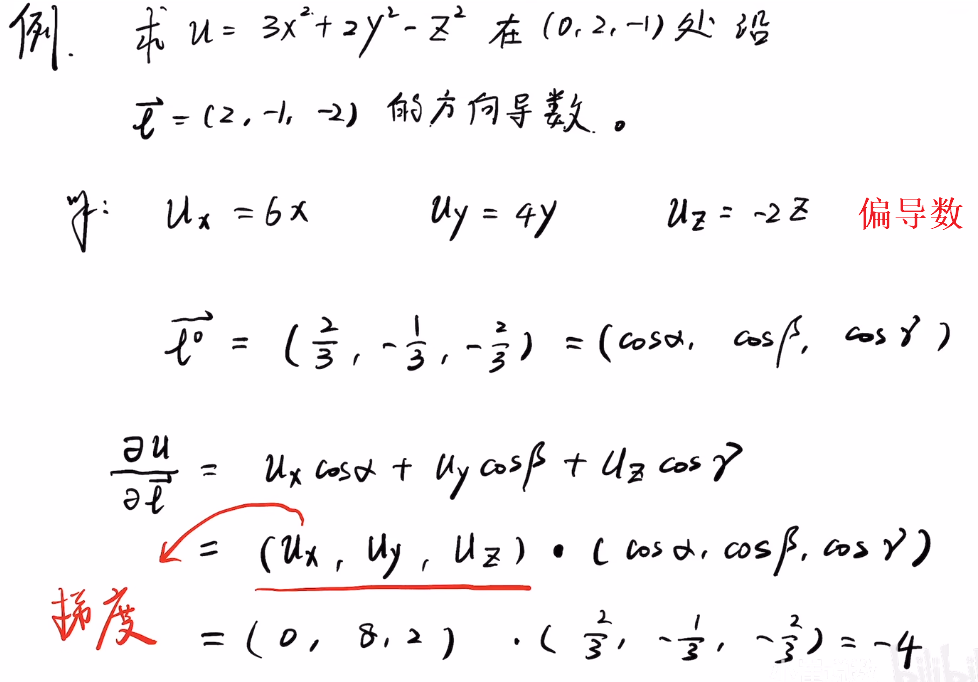 例. 求 u = 3x²+2y²-z² 在 (0,2,-1) 处 沿
l⃗ = (2,-1,-2) 的方向导数。
解: uₓ = 6x u_y = 4y u_z = -2z 偏导数
l⃗⁰ = (2/3, -1/3, -2/3) = (cosα, cosβ, cosγ)
∂u/∂l⃗ = uₓcosα + u_ycosβ + u_zcosγ
= (uₓ, u_y, u_z) • (cosα, cosβ, cosγ)
梯度 = (0, 8, 2) · (2/3, -1/3, -2/3) = -4
bilibili